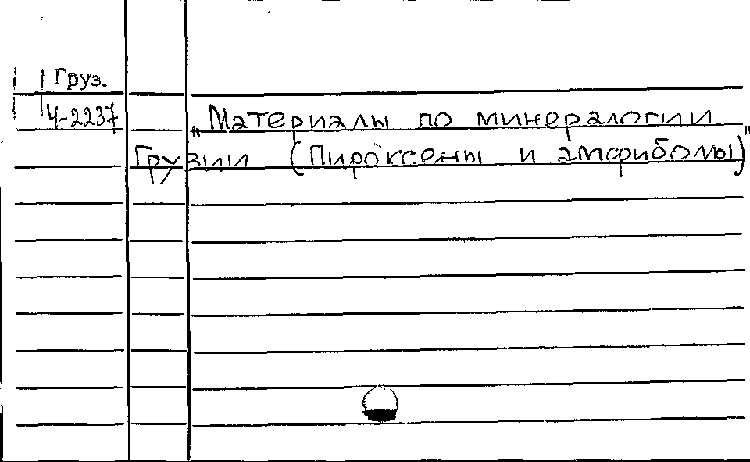 Груз.
Ч-2237
„Материалы по минералогии
Грузии (Пироксены и амфиболы)"